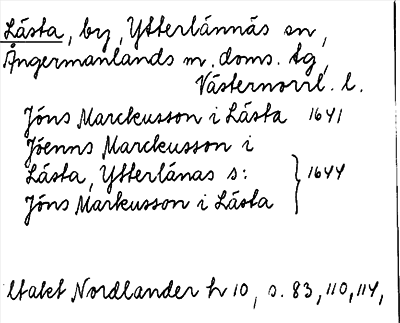 Lästa, by, Ytterlännäs sn,
Ångermanlands m. doms. tg,
Västernorrl. l.
Jöns Marckusson i Lästa 1641
Jöenns Marckusson i
Lästa, Ytterlänas s: 1644
Jöns Markusson i Lästa
Utakt Nordlander h 10, s. 83, 110, 114,